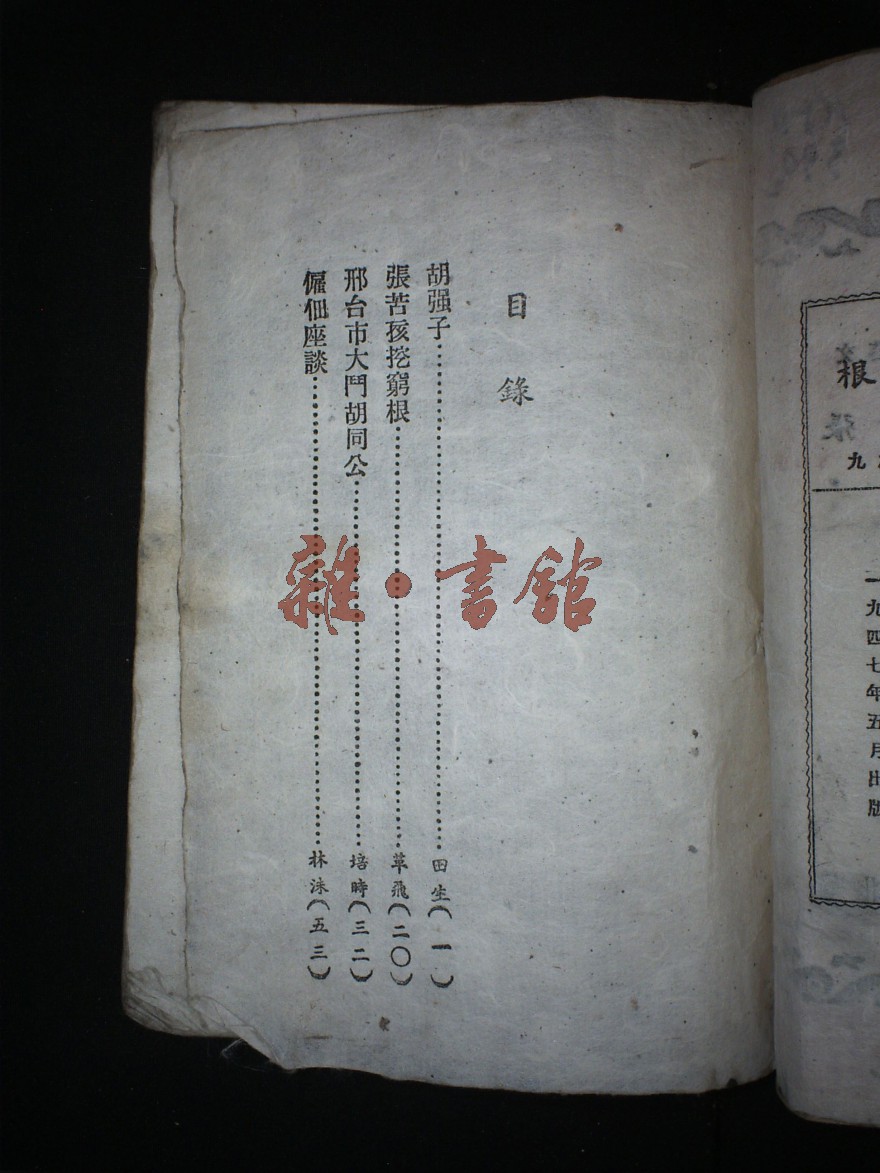 目錄
胡强子……田生(一)
張苦孩挖窮根……革飛(二〇)
邢台市大鬥胡同公……培時(三二)
僱佃座談……林洙(五三)
雜·書館
根
張
九
一九四七年五月出版